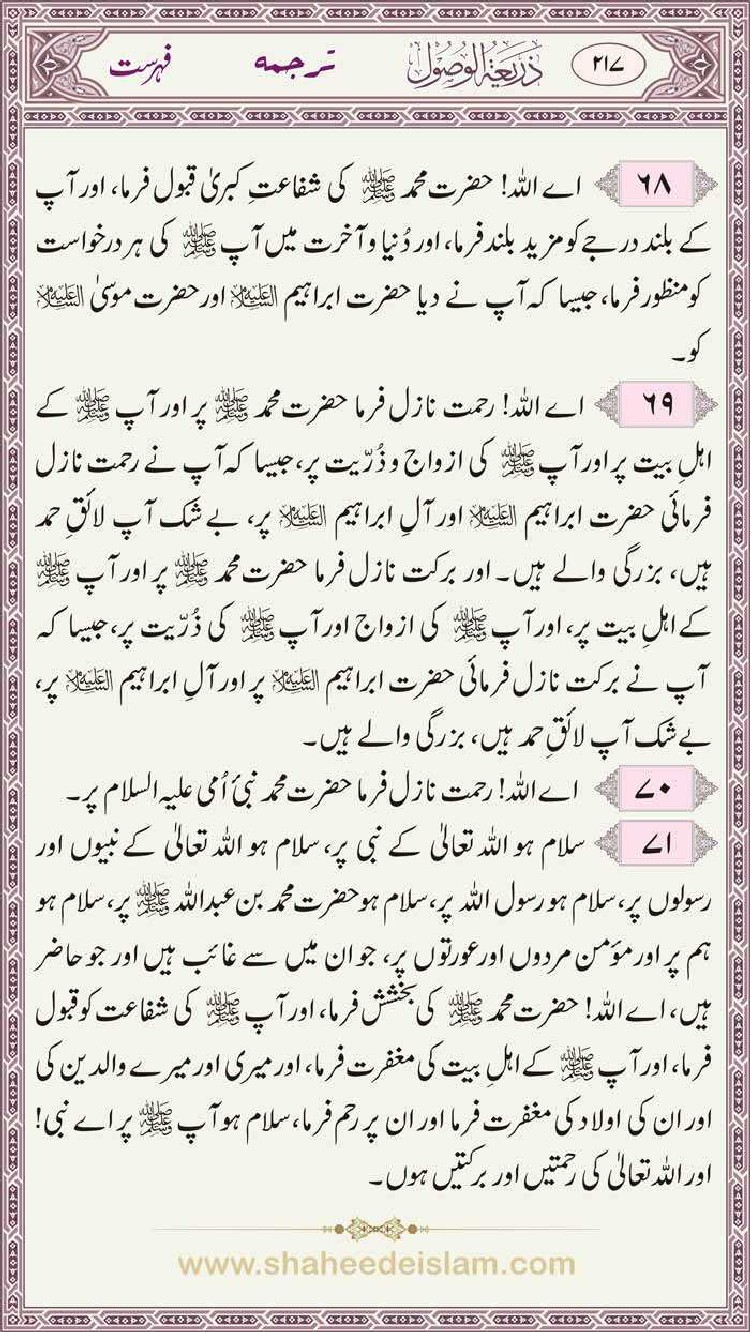 ۲۱۷ ذَرِیعَۃُ الوُصُول ترجمہ فہرست
۶۸ اے اللہ! حضرت محمد ﷺ کی شفاعتِ کبریٰ قبول فرما، اور آپ
کے بلند درجے کو مزید بلند فرما، اور دُنیا و آخرت میں آپ ﷺ کی ہر درخواست
کو منظور فرما، جیسا کہ آپ نے دیا حضرت ابراہیم علیہ السلام اور حضرت موسیٰ علیہ السلام
کو۔
۶۹ اے اللہ! رحمت نازل فرما حضرت محمد ﷺ پر اور آپ ﷺ کے
اہلِ بیت پر اور آپ ﷺ کی ازواج و ذُرّیت پر، جیسا کہ آپ نے رحمت نازل
فرمائی حضرت ابراہیم علیہ السلام اور آلِ ابراہیم علیہ السلام پر، بے شک آپ لائقِ حمد
ہیں، بزرگی والے ہیں۔ اور برکت نازل فرما حضرت محمد ﷺ پر اور آپ ﷺ
کے اہلِ بیت پر، اور آپ ﷺ کی ازواج اور آپ ﷺ کی ذُرّیت پر، جیسا کہ
آپ نے برکت نازل فرمائی حضرت ابراہیم علیہ السلام پر اور آلِ ابراہیم علیہ السلام پر،
بے شک آپ لائقِ حمد ہیں، بزرگی والے ہیں۔
۷۰ اے اللہ! رحمت نازل فرما حضرت محمد نبیٔ اُمی علیہ السلام پر۔
۷۱ سلام ہو اللہ تعالیٰ کے نبی پر، سلام ہو اللہ تعالیٰ کے نبیوں اور
رسولوں پر، سلام ہو رسول اللہ پر، سلام ہو حضرت محمد بن عبداللہ ﷺ پر، سلام ہو
ہم پر اور مؤمن مردوں اور عورتوں پر، جو ان میں سے غائب ہیں اور جو حاضر
ہیں، اے اللہ! حضرت محمد ﷺ کی بخشش فرما، اور آپ ﷺ کی شفاعت کو قبول
فرما، اور آپ ﷺ کے اہلِ بیت کی مغفرت فرما، اور میری اور میرے والدین کی
اور ان کی اولاد کی مغفرت فرما اور ان پر رحم فرما، سلام ہو آپ ﷺ پر اے نبی!
اور اللہ تعالیٰ کی رحمتیں اور برکتیں ہوں۔
www.shaheedeislam.com